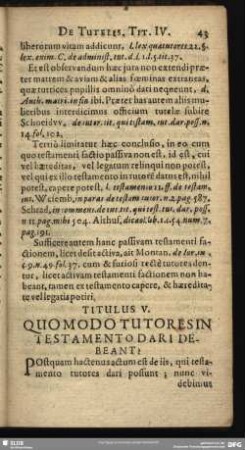 De Tutelis, Tit. IV. 43
liberorum vitam addicunt, l. lex quæ tutores 22. §.
lex. enim. C. de administ. tut. d. l. 1. l. 5. tit. 37.
Et est observandum hæc juta non extendi præter matrem & aviam
ad alias fœminas extraneas,
quæ tutrices pupillis omninò dari nequeunt, d.
Auth. matri. in fin ibi. Præter has autem aliis mulieribus
interdicimus officium tutelæ subire
Schneidvv. de tutor. tit. qui testam. tut. dar. poss. n.
14. fol. 102.
Tertiò limitatur hæc conclusio, in eo cum
quo testamenti factio passiva non est, id est, cui
vel hæreditas, vel legatum relinqui non potest,
vel qui ex illo testamento in tutorē datus est, nihil
potest, capere potest, l. testamento 21. ff. de testam.
tut. Wiesemb. in parat. de testam. tutor. n. 2. pag. 587.
in comment. de tut. tit. qui test. tut. dar. poss.
n. 11. pag. mibi 504. Althus. dicaol. lib. 1. c. 54. num. 7.
pag. 191.
Sufficere autem hanc passivam testamenti factionem,
licet desit activa, ait Montan. de tur. m.
c. 9. n. 49. fol. 37. cum & furiosi rectè tutores dentur,
licet activam testamenti factionem non habeant,
tamen ex testamento capere, & hæreditate
vel legati apotiri,
TITULUS V.
QUOMODO TUTORES IN
TESTAMENTO DARI DEBEANT:
POstquam hactenus actum est de iis, qui testamento
tutores dari possunt; nunc videbimus
SLUB
DRESDEN
DFG